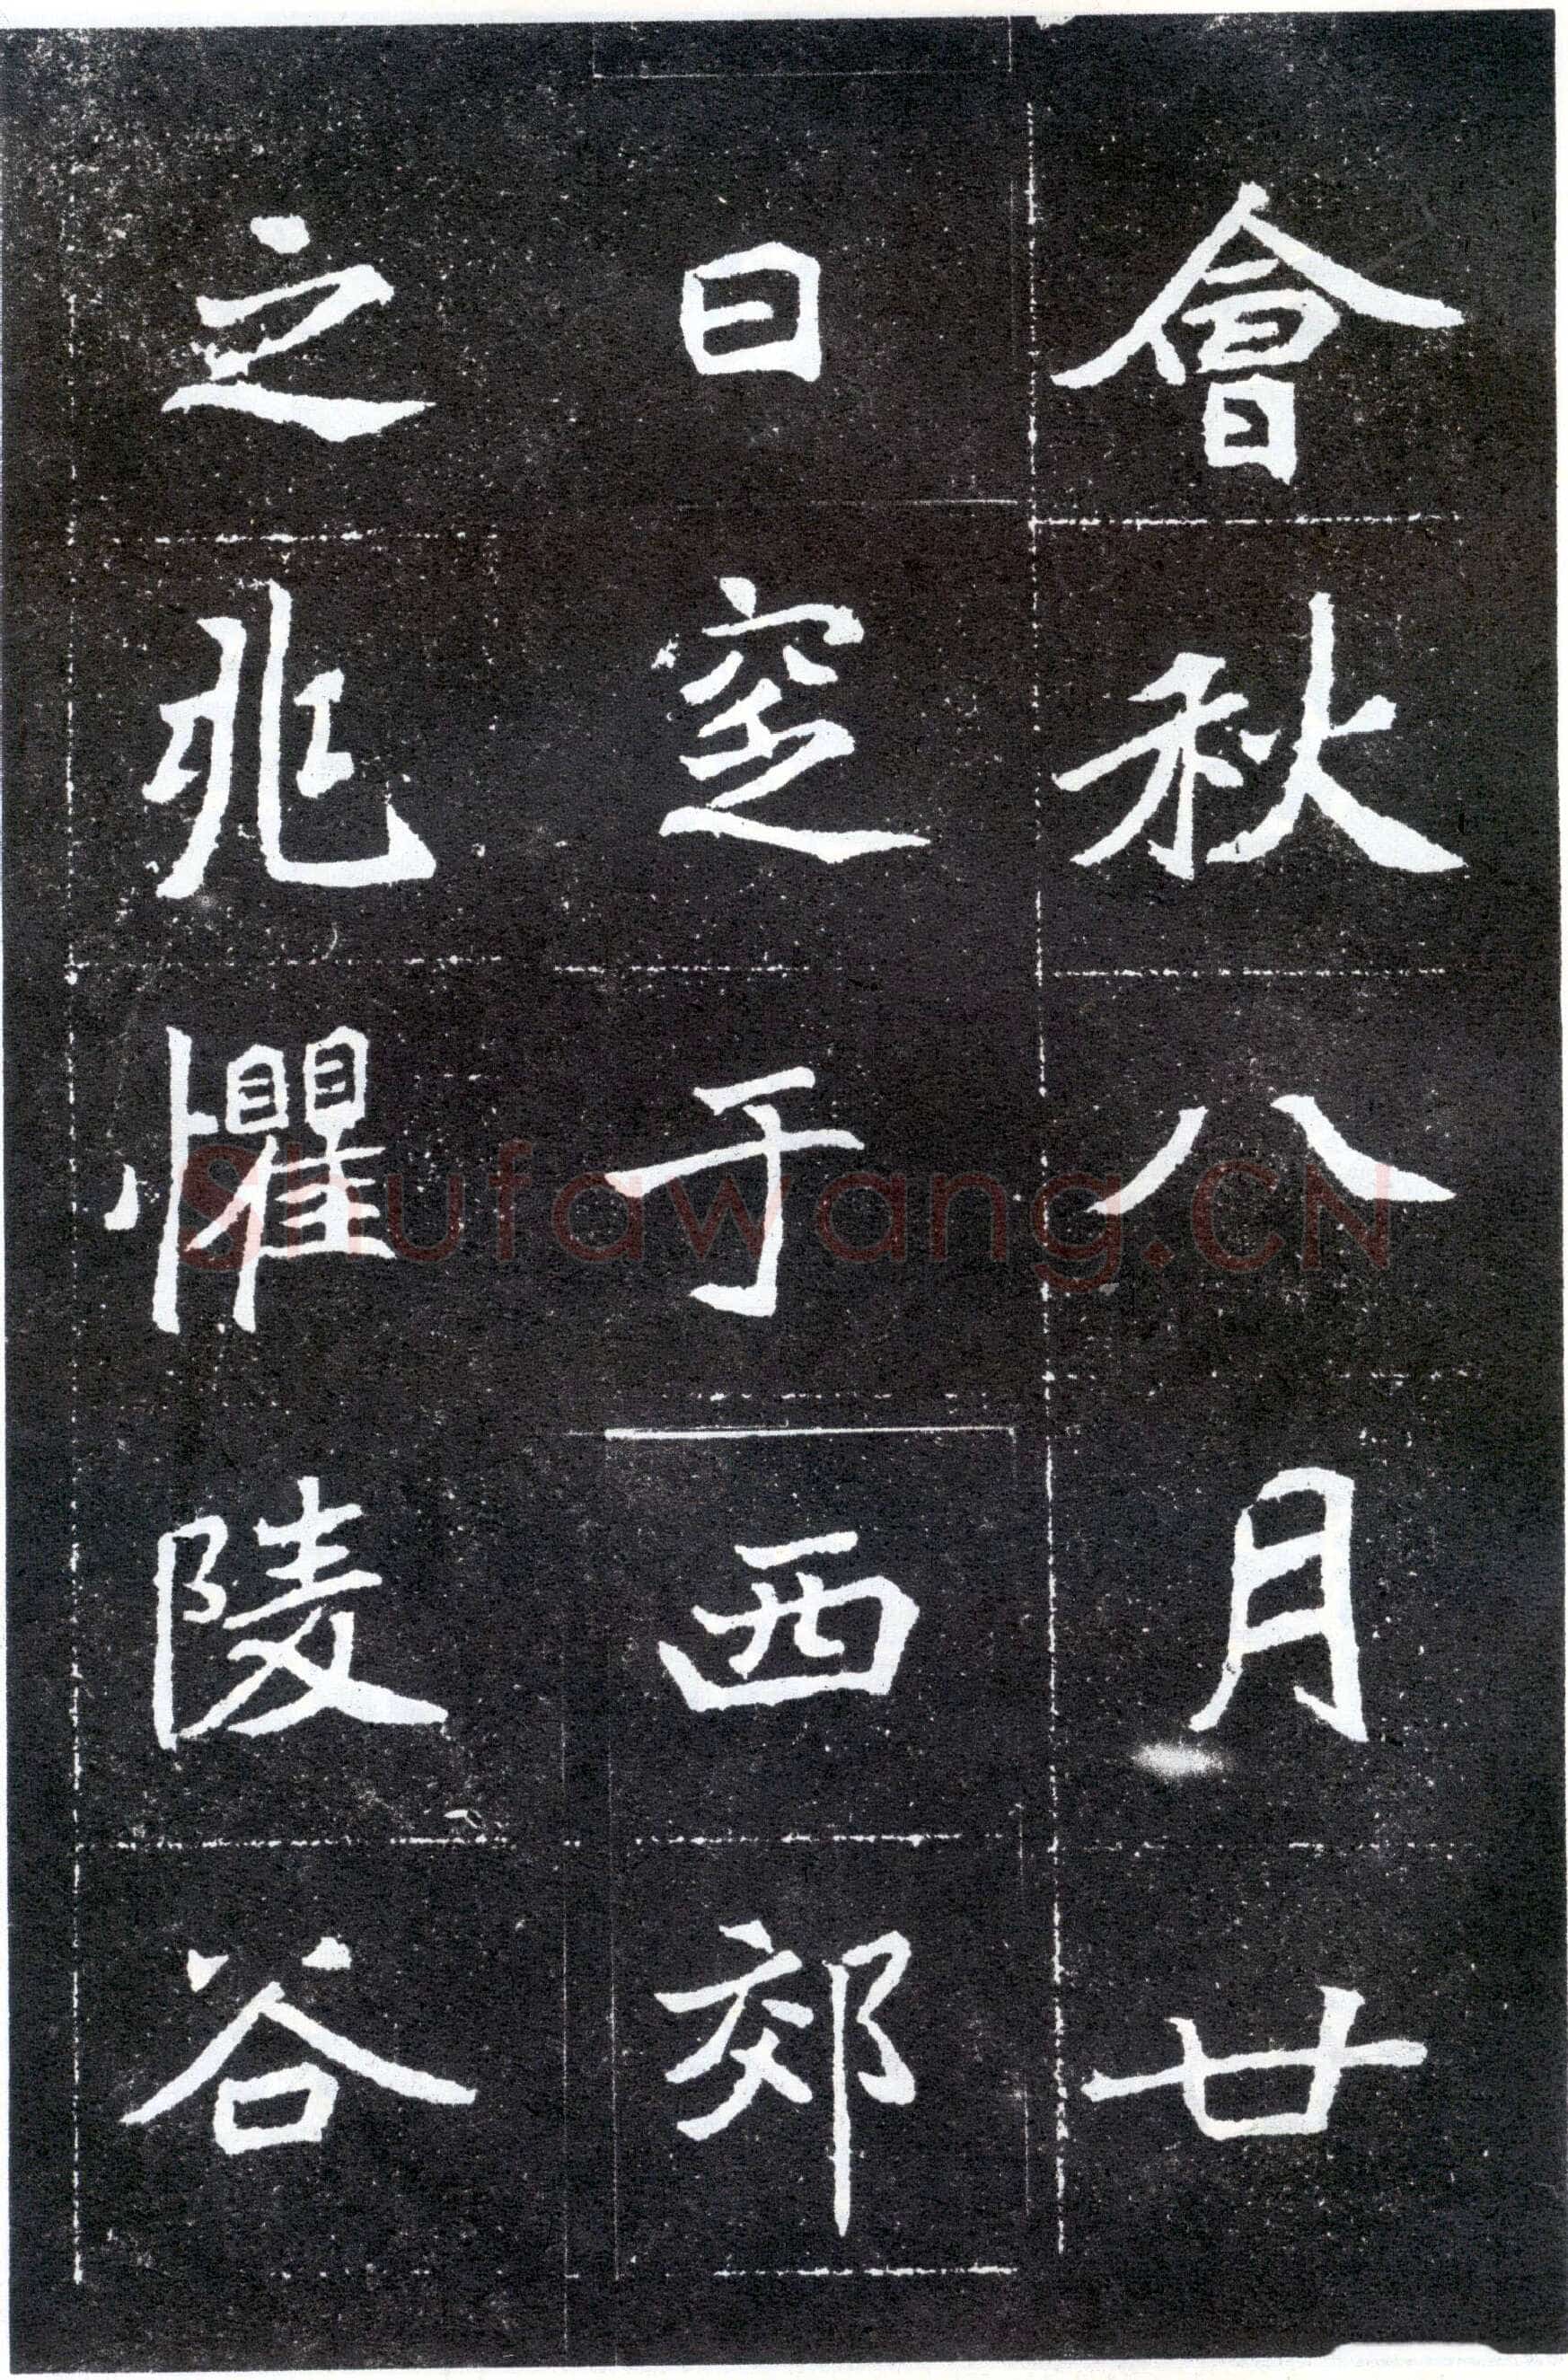 會秋八月廿
日窆于西郊
之兆懼陵谷
Shufawang.CN